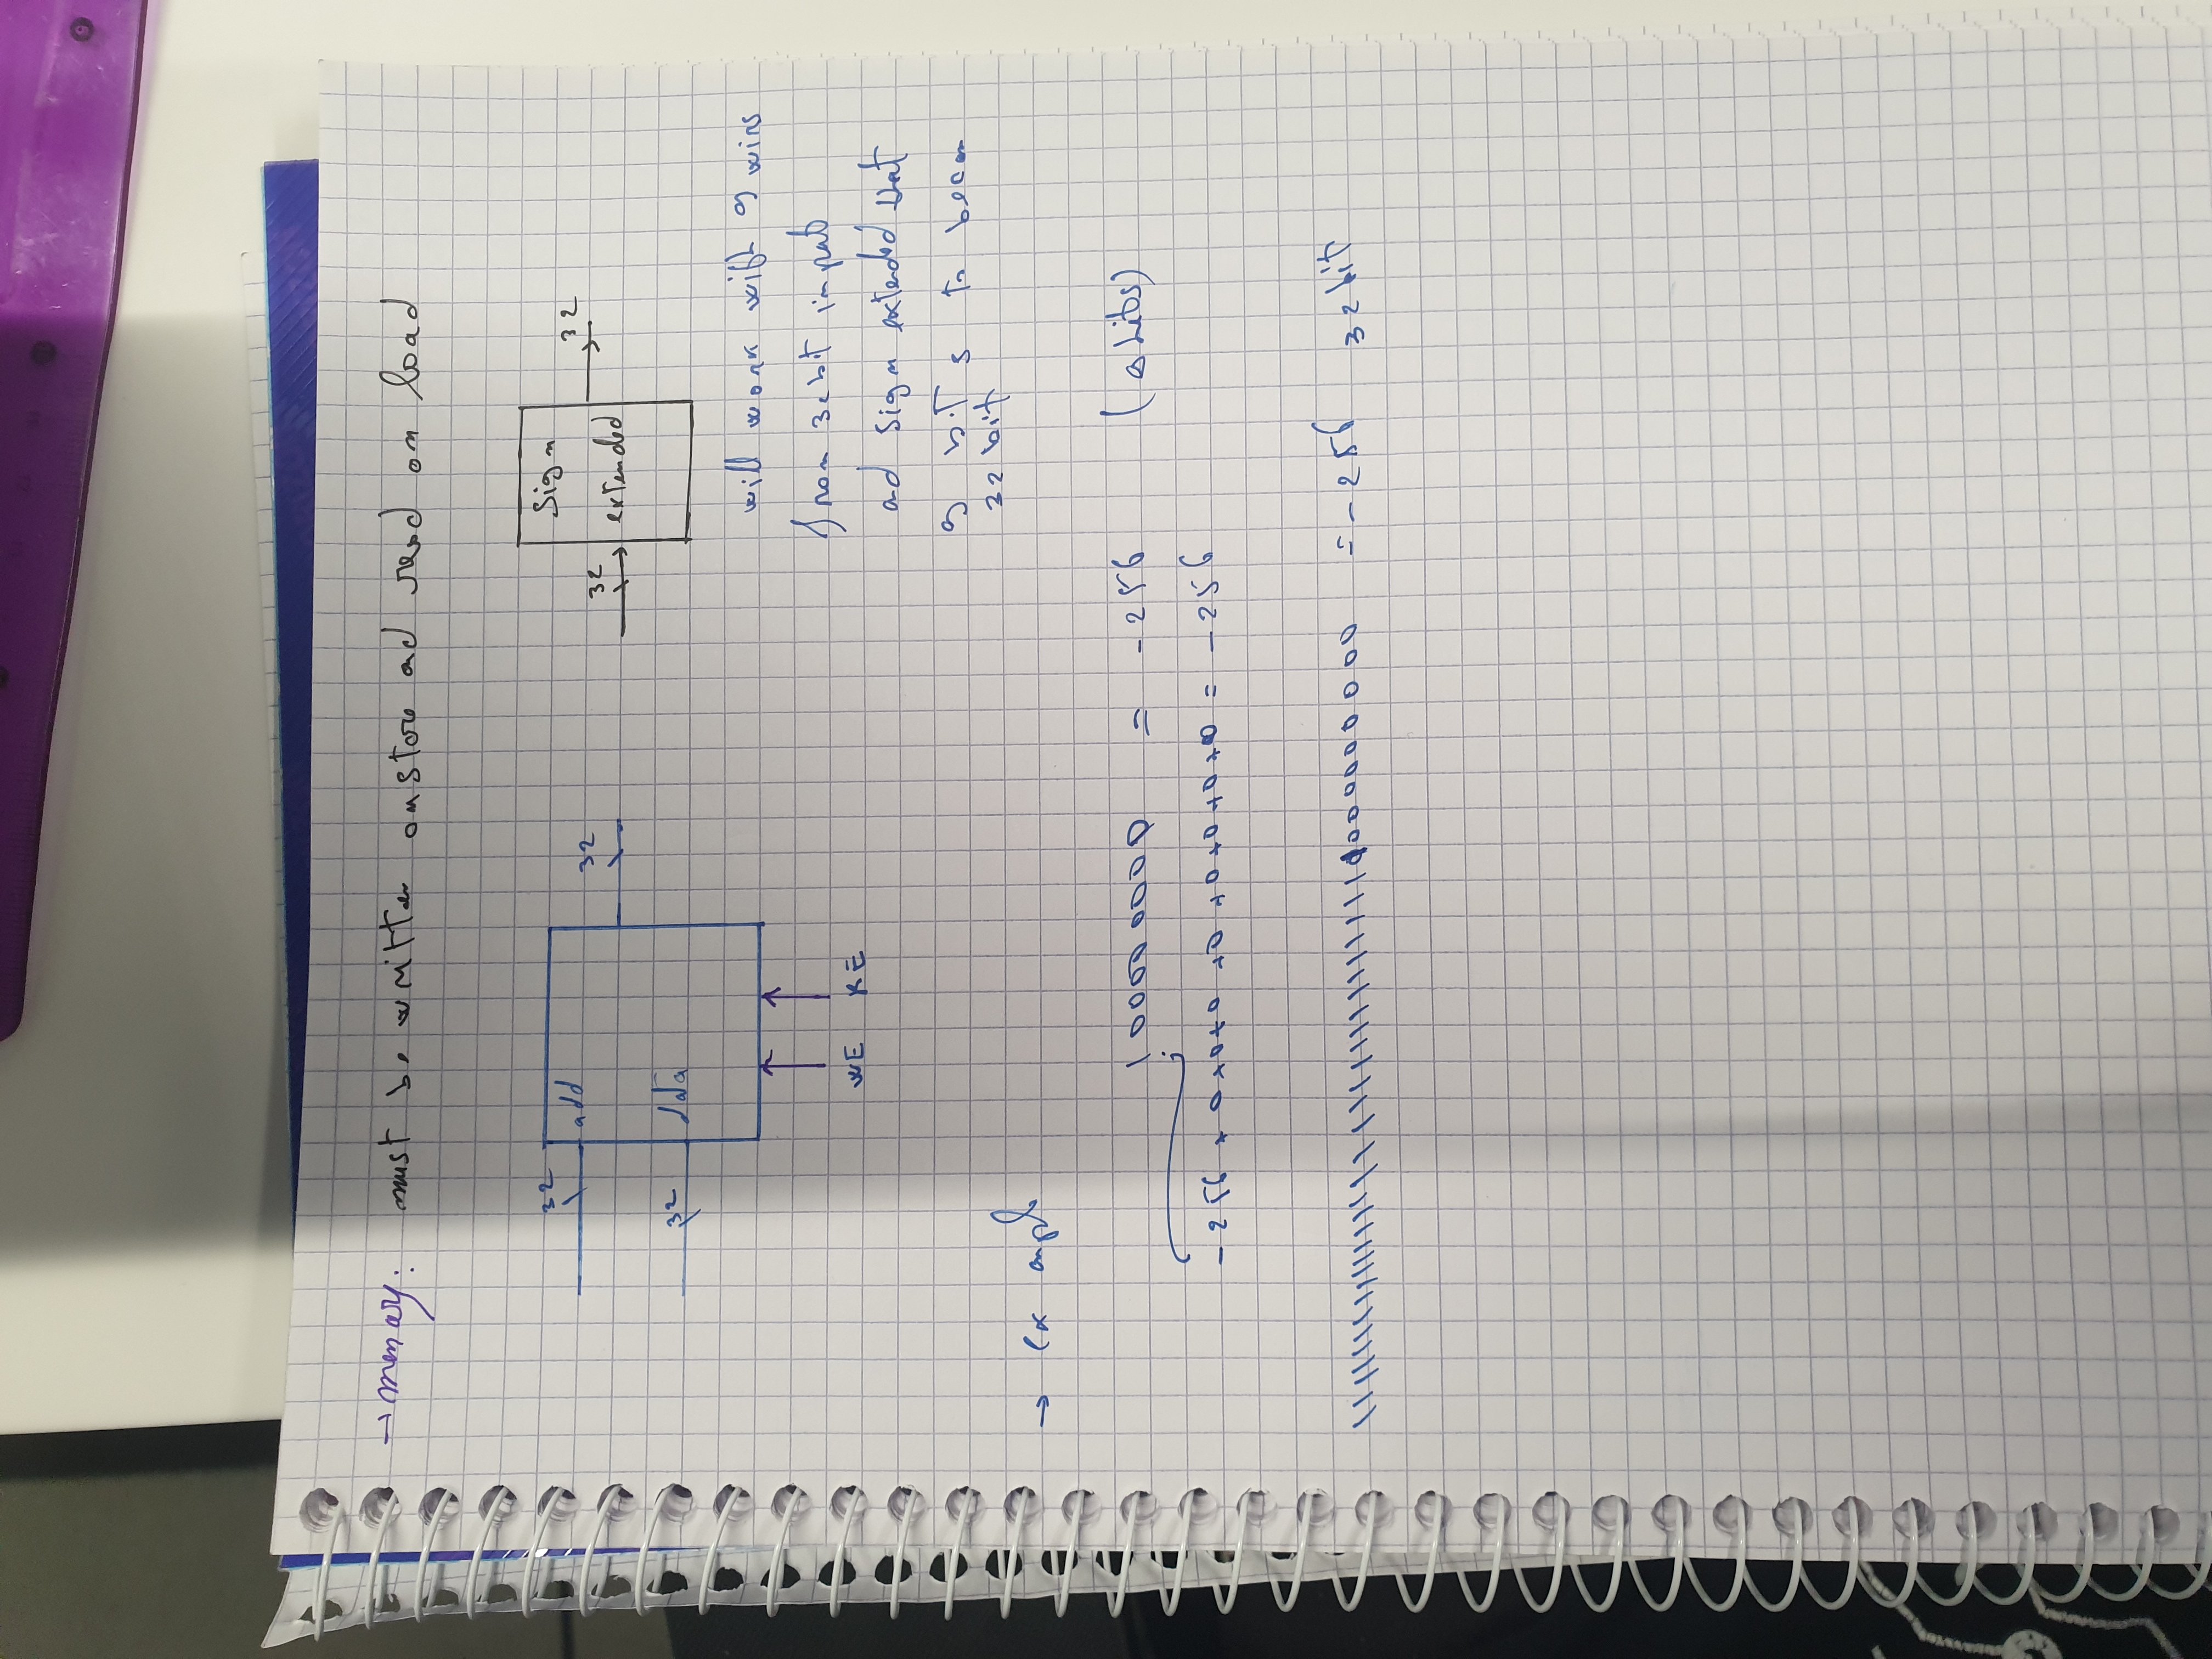 → memory: must be written on store and read on load
32
add
32
data
32
WE RE
32
Sign
extended
32
will work with 9 wires
from 32bit input
and sign extended that
9 bits to becom
32 bit
→ Example
100000000 = -256 (9 bits)
-256 + 0 + 0 + 0 + 0 + 0 + 0 + 0 + 0 = -256
= -256 32 bit